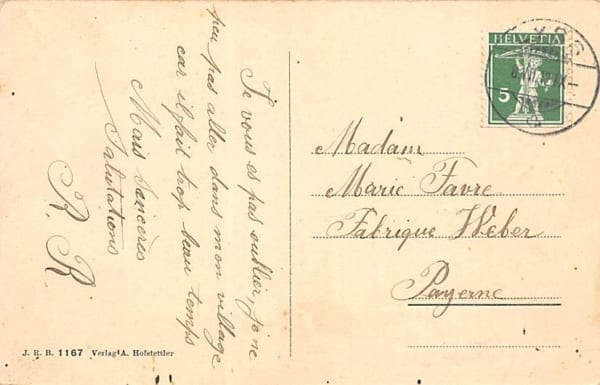 Je vous es pas oublier, je ne
peu pas aller dans mon village
car il fait trop beau temps
Mais Sancères
Salutations
R. R.
HELVETIA
5
Madame
Marie Favre
Fabrique Weber
Payerne
J. R. B. 1167 Verlag A. Hofstettler